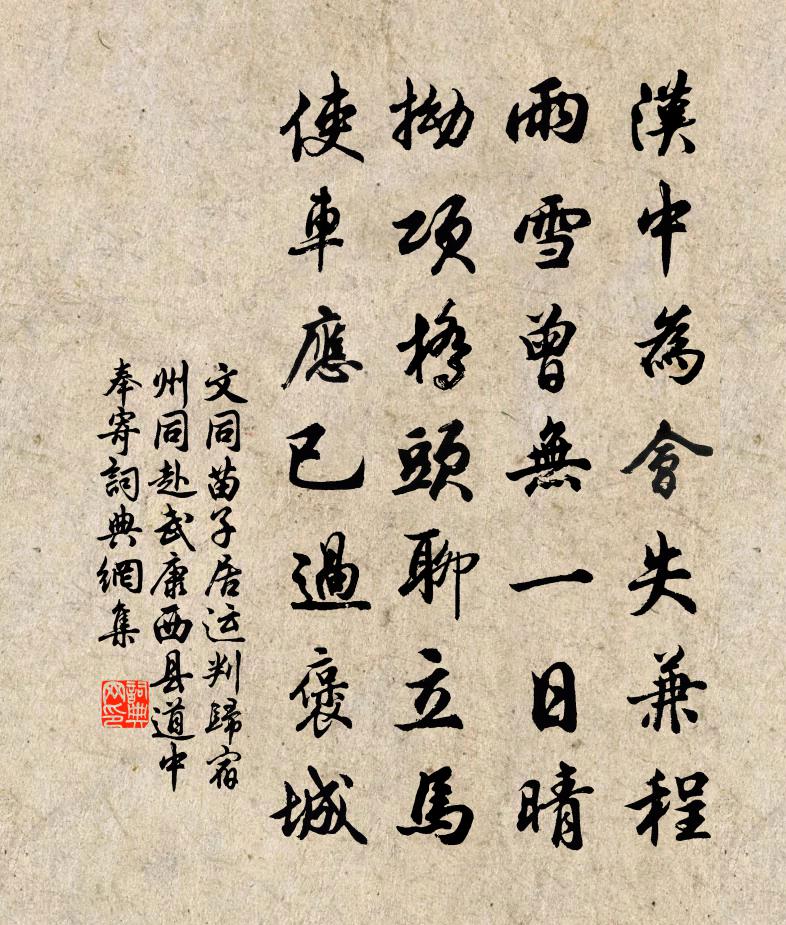 漢中為會失兼程
雨雪曾無一日晴
拗項橋頭聊立馬
使車應已過褒城
文同苗子居运判歸宿
州同赴武康西县道中
奉寄詞典網集
詞典网印